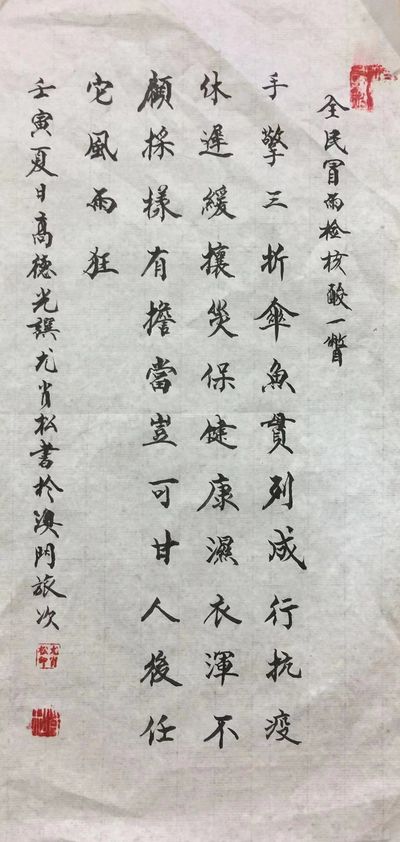 全民冒雨检核酸一瞥
手擎三折傘魚貫列成行抗疫
休遲緩攘災保健康濕衣渾不
顧採樣有擔當豈可甘人後任
它風雨狂
壬寅夏日高德光譔尤肖松書於澳門旅次
尤肖松印